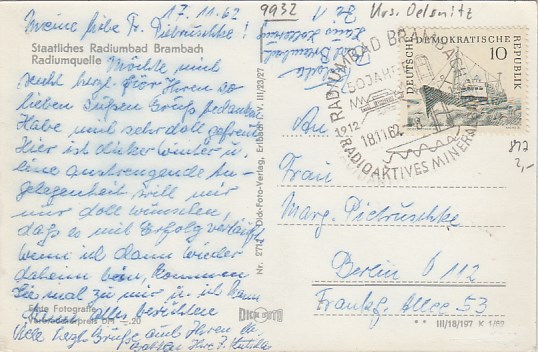 17.11.62
9932
Krs. Oelsnitz
Meine liebe Fr. Pietruschke!
Staatliches Radiumbad Brambach
Radiumquelle
Möchte mich
recht herzl. für Ihren so
lieben süßen Gruß bedanken
Habe mich sehr doll gefreut
Hier ist dicker Winter u.
eine anstrengende An-
gelegenheit. Will mir
nur doll wünschen,
daß es mit Erfolg verläuft
wenn ich dann wieder
daheim bin, kommen
Sie mal zu mir u. ich kann
Ihnen alles berichten
Viele herzl. Grüße auch Ihren
Echte Fotografie
Verbraucherpreis DM -.20
Nr. 2712 Dick-Foto-Verlag, Erlbach i. V. III/23/27
DICK FOTO
RADIUMBAD BRAMBACH
50 JAHRE
1912
18.11.62
RADIOAKTIVES MINERAL
DEUTSCHE DEMOKRATISCHE REPUBLIK
10
877
2,-
An
Frau
Marg. Pietruschke
Berlin O 112
Frankf. Allee 53
III/18/197 K 1/62